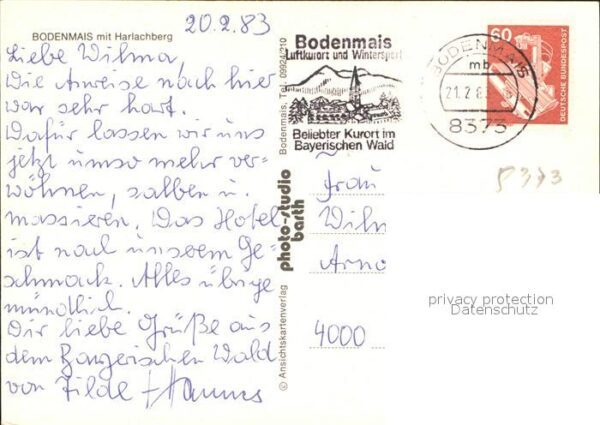 BODENMAIS mit Harlachberg
20.2.83
Liebe Wilma,
Die Anreise nach hier
war sehr hart.
Dafür lassen wir uns
jetzt umso mehr ver-
wöhnen, salben u.
massieren. Das Hotel
ist nach unserem Ge-
schmack. Alles übrige
mündlich.
Dir liebe Grüße aus
dem Bayerischen Wald
von Tilde + Hannes
© Ansichtskartenverlag
photo-studio
barth
Bodenmais, Tel. 09924/210
Bodenmais
Luftkurort und Wintersport
Beliebter Kurort im
Bayerischen Wald
BODENMAIS
mb
21.2.8
8373
60
DEUTSCHE BUNDESPOST
5373
Frau
Wilm
Arno
4000
privacy protection
Datenschutz